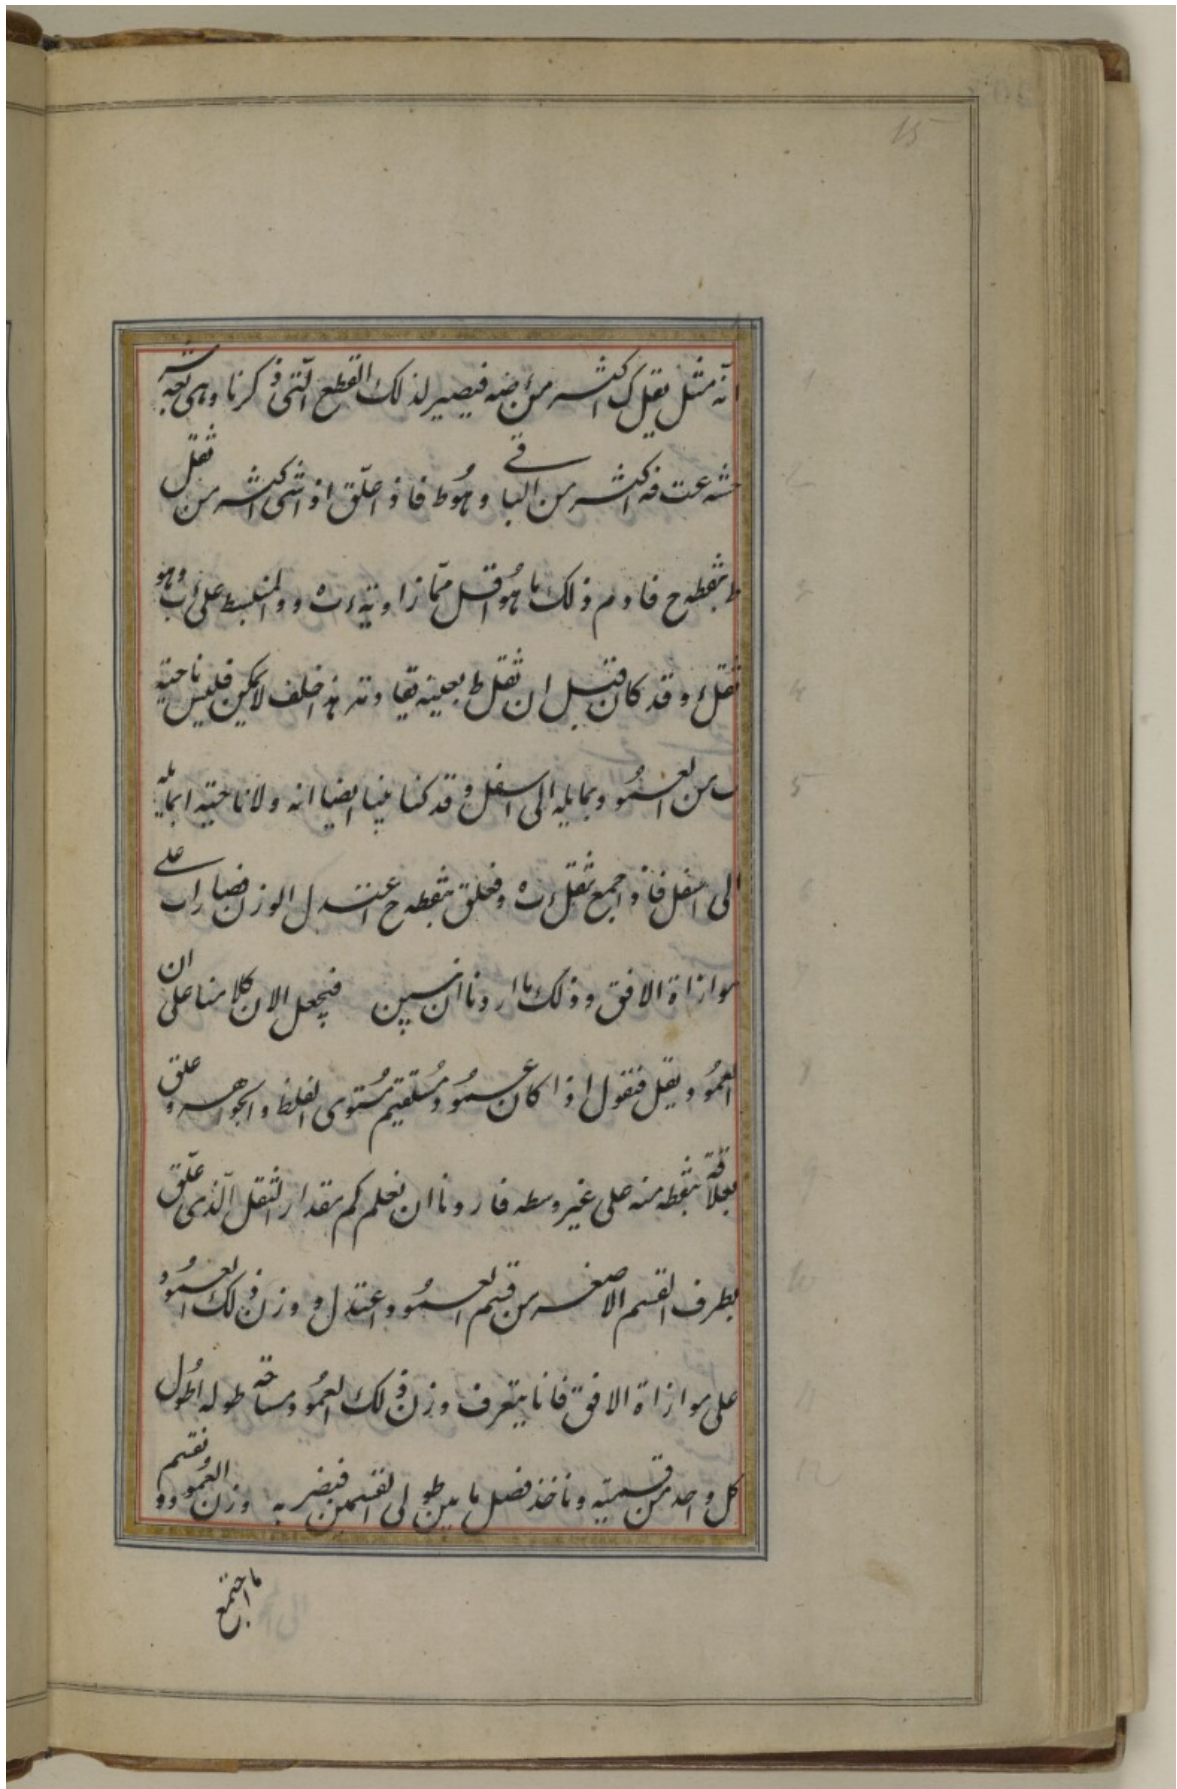 15
انه مثل ثقل ك اكثر من اضه فيصير لذلك القطع التى ذكرنا وهى
عت فه اكثر من الباقى وهوط فاذا علق اذا شى اكثر من ثقل
ط بنقطه ح فاوم ذلك ما هو اقل مما زاويه ء ره ووالمنبسط على اب وهو
ثقل ء وقد كان قيل ان ثقل ط بعينه يقاومه هذا خلف لا يمكن فليس ناحية
ب من العمود بمايله الى اسفل وقد كنا بينا ايضا انه ولا ناحيته ا بمايله
الى اسفل فاذا جمع ثقل ء ره وفعلق بنقطه ح اعتدل الوزن فصار اب على
موازاة الافق وذلك ما اردنا ان نبين فنجعل الان كلامنا على ان
العمود يقل فنقول اذا كان عمود مستقيم مستوى الغلظ والجوهر وعلق
بعلاقة بنقطه منه على غير وسطه فاردنا ان نعلم كم مقدار الثقل الذى علق
بطرف القسم الاصغر من قسم العمود واعتدل وزن ذلك العمود
على موازاة الافق فانا يتعرف وزن ذلك العمود ومساحة طوله اطول
كل واحد من قسميه وناخذ فضل ما بين طولى القسمين فنضر به وزن العمود ونقسم
ما اجتمع